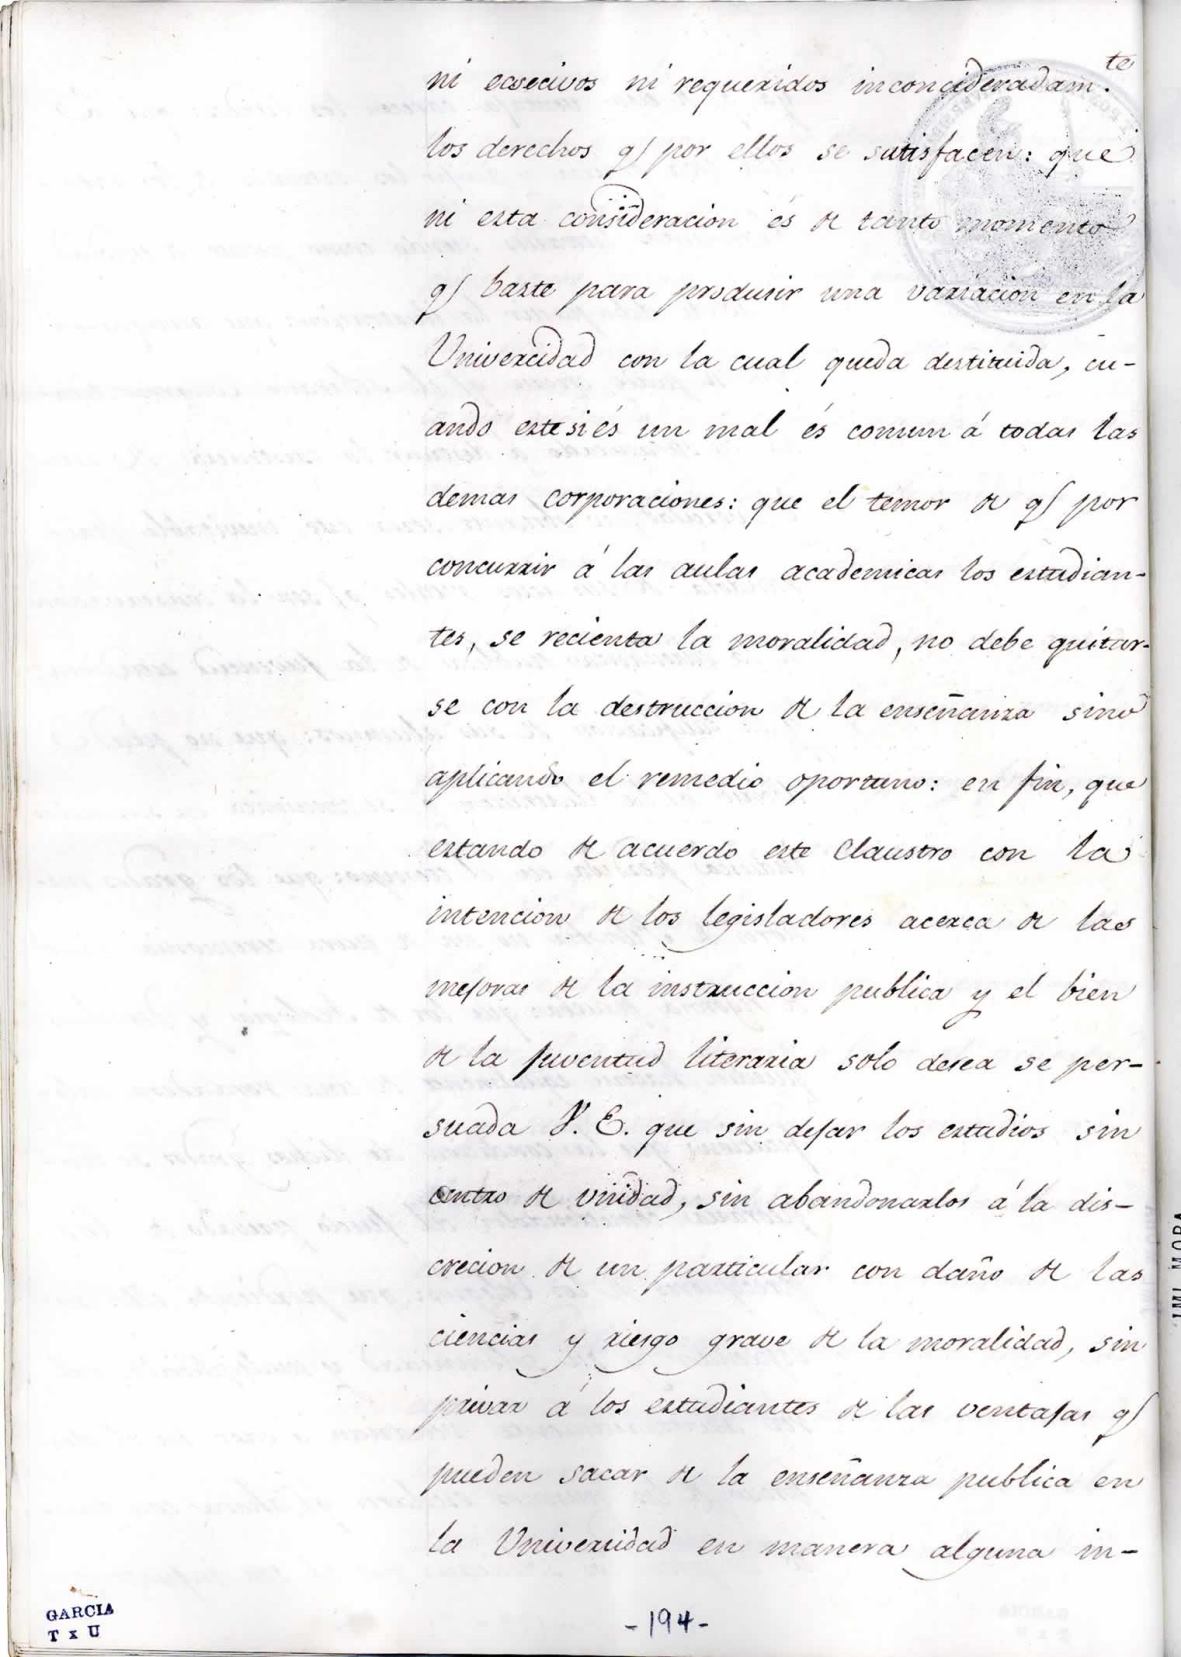 ni ecsecivos ni requeridos inconcideradam.te
los derechos q por ellos se satisfacen: que
ni esta consideracion és de tanto momento
q baste para produsir una variacion en la
Univercidad con la cual queda destituida, cu-
ando este si és un mal és comun á todas las
demas corporaciones: que el temor de q por
concurrir á las aulas academicas los estudian-
tes, se recienta la moralidad, no debe quitar-
se con la destruccion de la enseñanza sino
aplicando el remedio oportuno: en fin, que
estando de acuerdo este Claustro con la
intencion de los legisladores acerca de las
mejoras de la instruccion publica y el bien
de la juventud literaria solo desea se per-
suada V. E. que sin dejar los estudios sin
centro de unidad, sin abandonarlos á la dis-
crecion de un particular con daño de las
ciencias y riesgo grave de la moralidad, sin
privar á los estudiantes de las ventajas q
pueden sacar de la enseñanza publica en
la Universidad en manera alguna in-
GARCIA
T x U
-194-